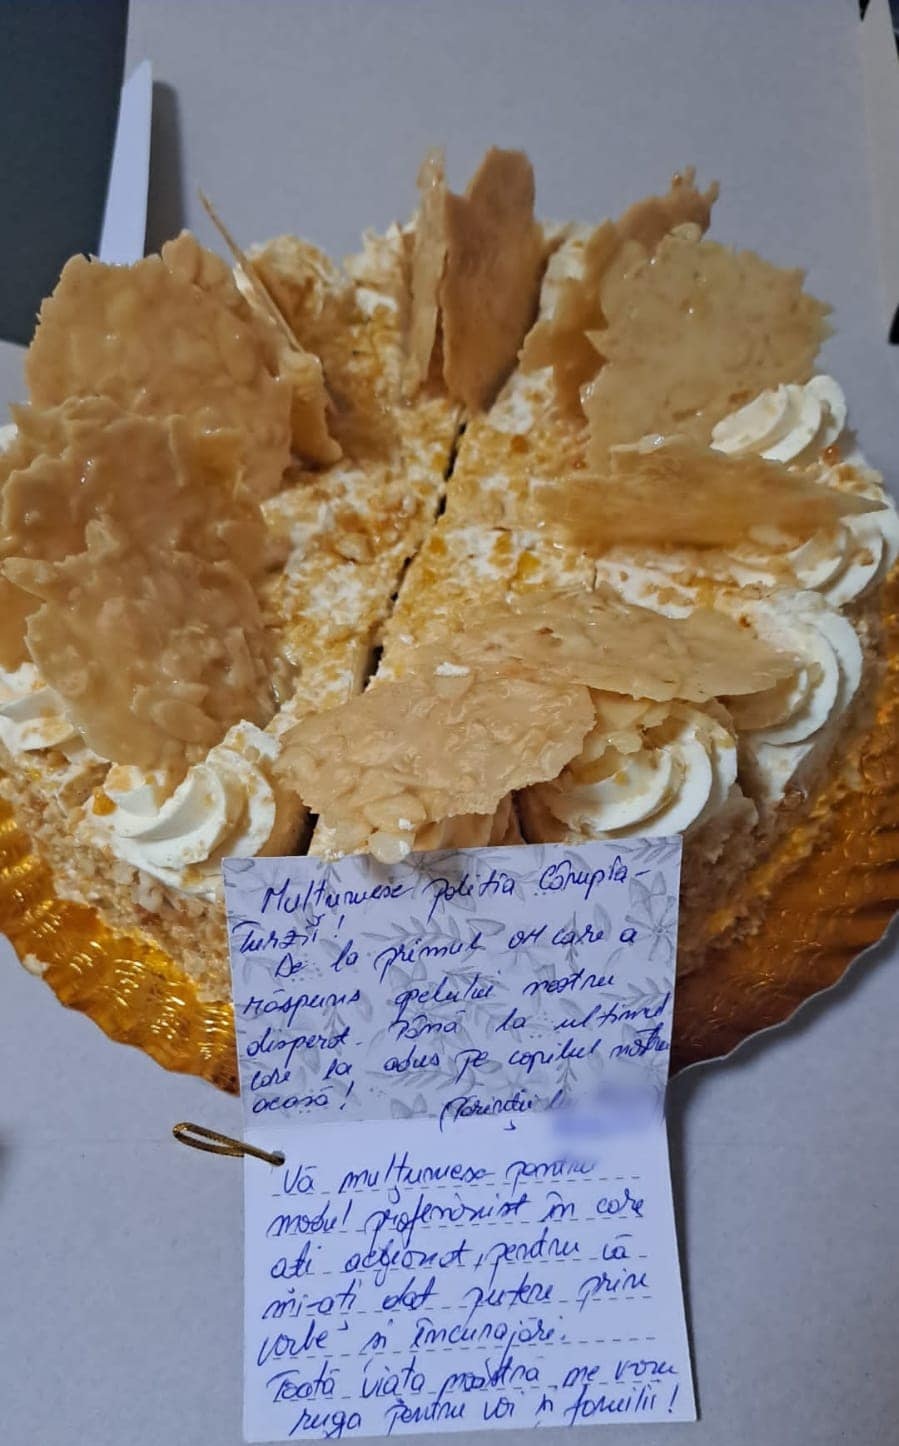 Mulțumesc poliția Câmpia-
Turzii!
De la primul om care a
răspuns apelului nostru
disperat. Până la ultimul
care l-a adus pe copilul nostru
acasă!
Părinții lu
Vă mulțumesc pentru
modul profesionist în care
ați acționat, pentru că
mi-ați dat putere prin
vorbe și încurajări.
Toată viața noastra ne vom
ruga pentru voi și familii!